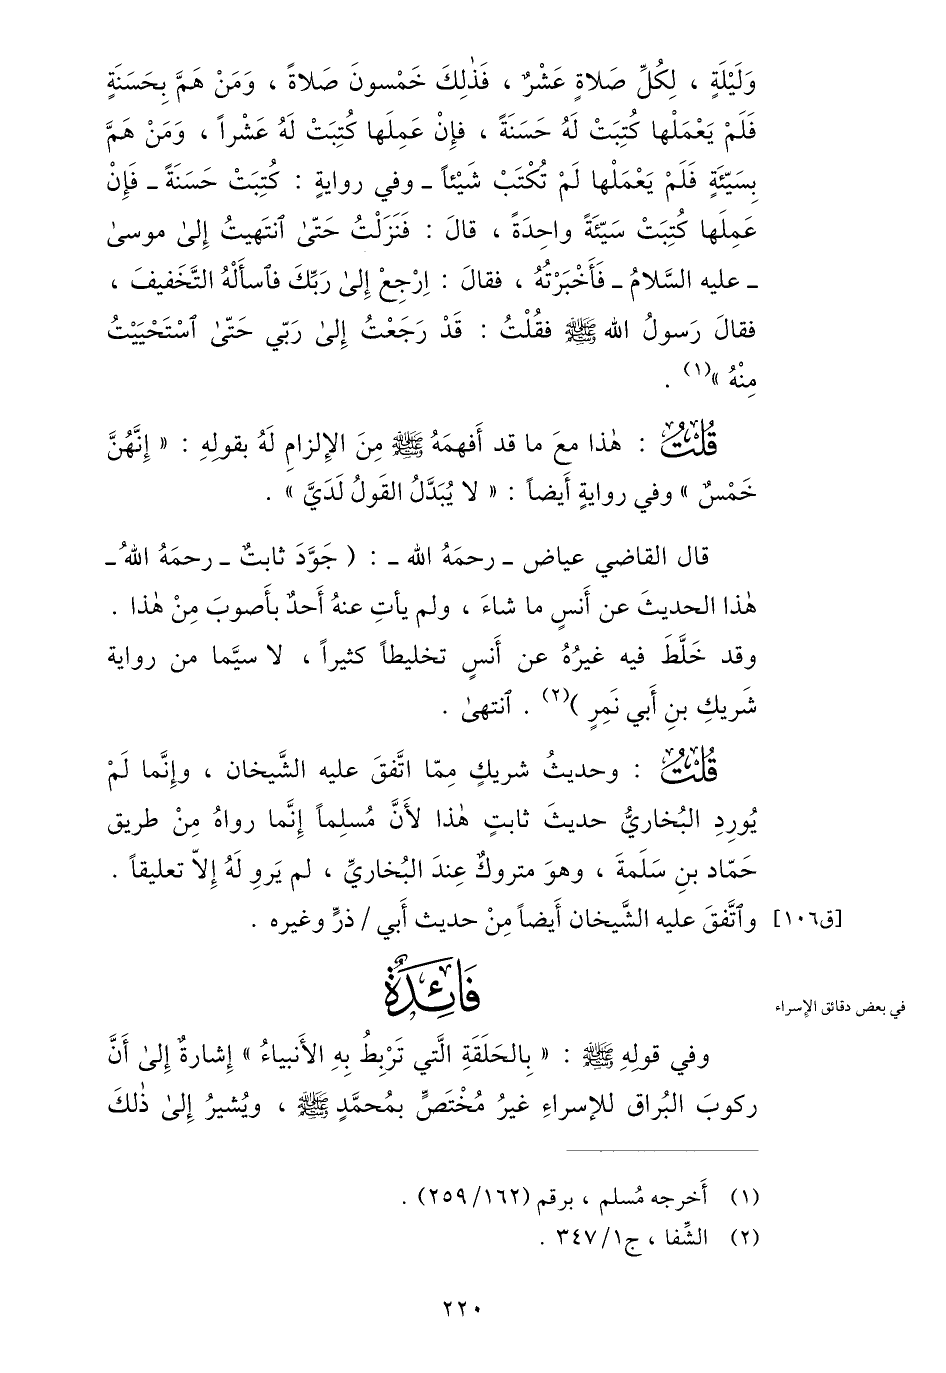 وَلَيْلَةٍ ، لِكُلِّ صَلاةٍ عَشْرٌ ، فَذٰلِكَ خَمْسونَ صَلاةً ، وَمَنْ هَمَّ بِحَسَنَةٍ
فَلَمْ يَعْمَلْها كُتِبَتْ لَهُ حَسَنَةً ، فإِنْ عَمِلَها كُتِبَتْ لَهُ عَشْراً ، وَمَنْ هَمَّ
بِسَيِّئَةٍ فَلَمْ يَعْمَلْها لَمْ تُكْتَبْ شَيْئاً ـ وفي روايةٍ : كُتِبَتْ حَسَنَةً ـ فإِنْ
عَمِلَها كُتِبَتْ سَيِّئَةً واحِدَةً ، قالَ : فَنَزَلْتُ حَتّىٰ ٱنتَهيتُ إِلىٰ موسىٰ
ـ عليه السَّلامُ ـ فَأَخْبَرْتُهُ ، فقالَ : اِرْجِعْ إِلىٰ رَبِّكَ فٱسأَلْهُ التَّخَفيفَ ،
فقالَ رَسولُ الله ﷺ فقُلْتُ : قَدْ رَجَعْتُ إِلىٰ رَبّي حَتّىٰ ٱسْتَحْيَيْتُ
مِنْهُ »(١) .
قُلْتُ : هٰذا معَ ما قد أَفهمَهُ ﷺ مِنَ الإِلزامِ لَهُ بقولِهِ : « إِنَّهُنَّ
خَمْسٌ » وفي روايةٍ أَيضاً : « لا يُبَدَّلُ القَولُ لَدَيَّ » .
قال القاضي عياض ـ رحمَهُ الله ـ : ( جَوَّدَ ثابتٌ ـ رحمَهُ اللهُ ـ
هٰذا الحديثَ عن أَنسٍ ما شاءَ ، ولم يأتِ عنهُ أَحدٌ بأَصوبَ مِنْ هٰذا .
وقد خَلَّطَ فيه غيرُهُ عن أَنسٍ تخليطاً كثيراً ، لا سيَّما من رواية
شَريكِ بنِ أَبي نَمِرٍ )(٢) . ٱنتهىٰ .
قُلْتُ : وحديثُ شريكٍ مِمّا اتَّفقَ عليه الشَّيخان ، وإِنَّما لَمْ
يُورِدِ البُخاريُّ حديثَ ثابتٍ هٰذا لأَنَّ مُسلِماً إِنَّما رواهُ مِنْ طريق
حَمّاد بنِ سَلَمةَ ، وهوَ متروكٌ عِندَ البُخاريِّ ، لم يَروِ لَهُ إِلاّ تعليقاً .
وٱتَّفقَ عليه الشَّيخان أَيضاً مِنْ حديث أَبي / ذرٍّ وغيره . [ق١٠٦]
فَائِدَةٌ
في بعض دقائق الإِسراء
وفي قولِهِ ﷺ : « بِالحَلَقَةِ الَّتي تَرْبِطُ بِهِ الأَنبياءُ » إِشارةٌ إِلىٰ أَنَّ
ركوبَ البُراق للإسراءِ غيرُ مُخْتَصٍّ بمُحمَّدٍ ﷺ ، ويُشيرُ إِلىٰ ذٰلكَ
(١) أَخرجه مُسلم ، برقم (١٦٢/ ٢٥٩) .
(٢) الشِّفا ، ج١/ ٣٤٧ .
٢٢٠